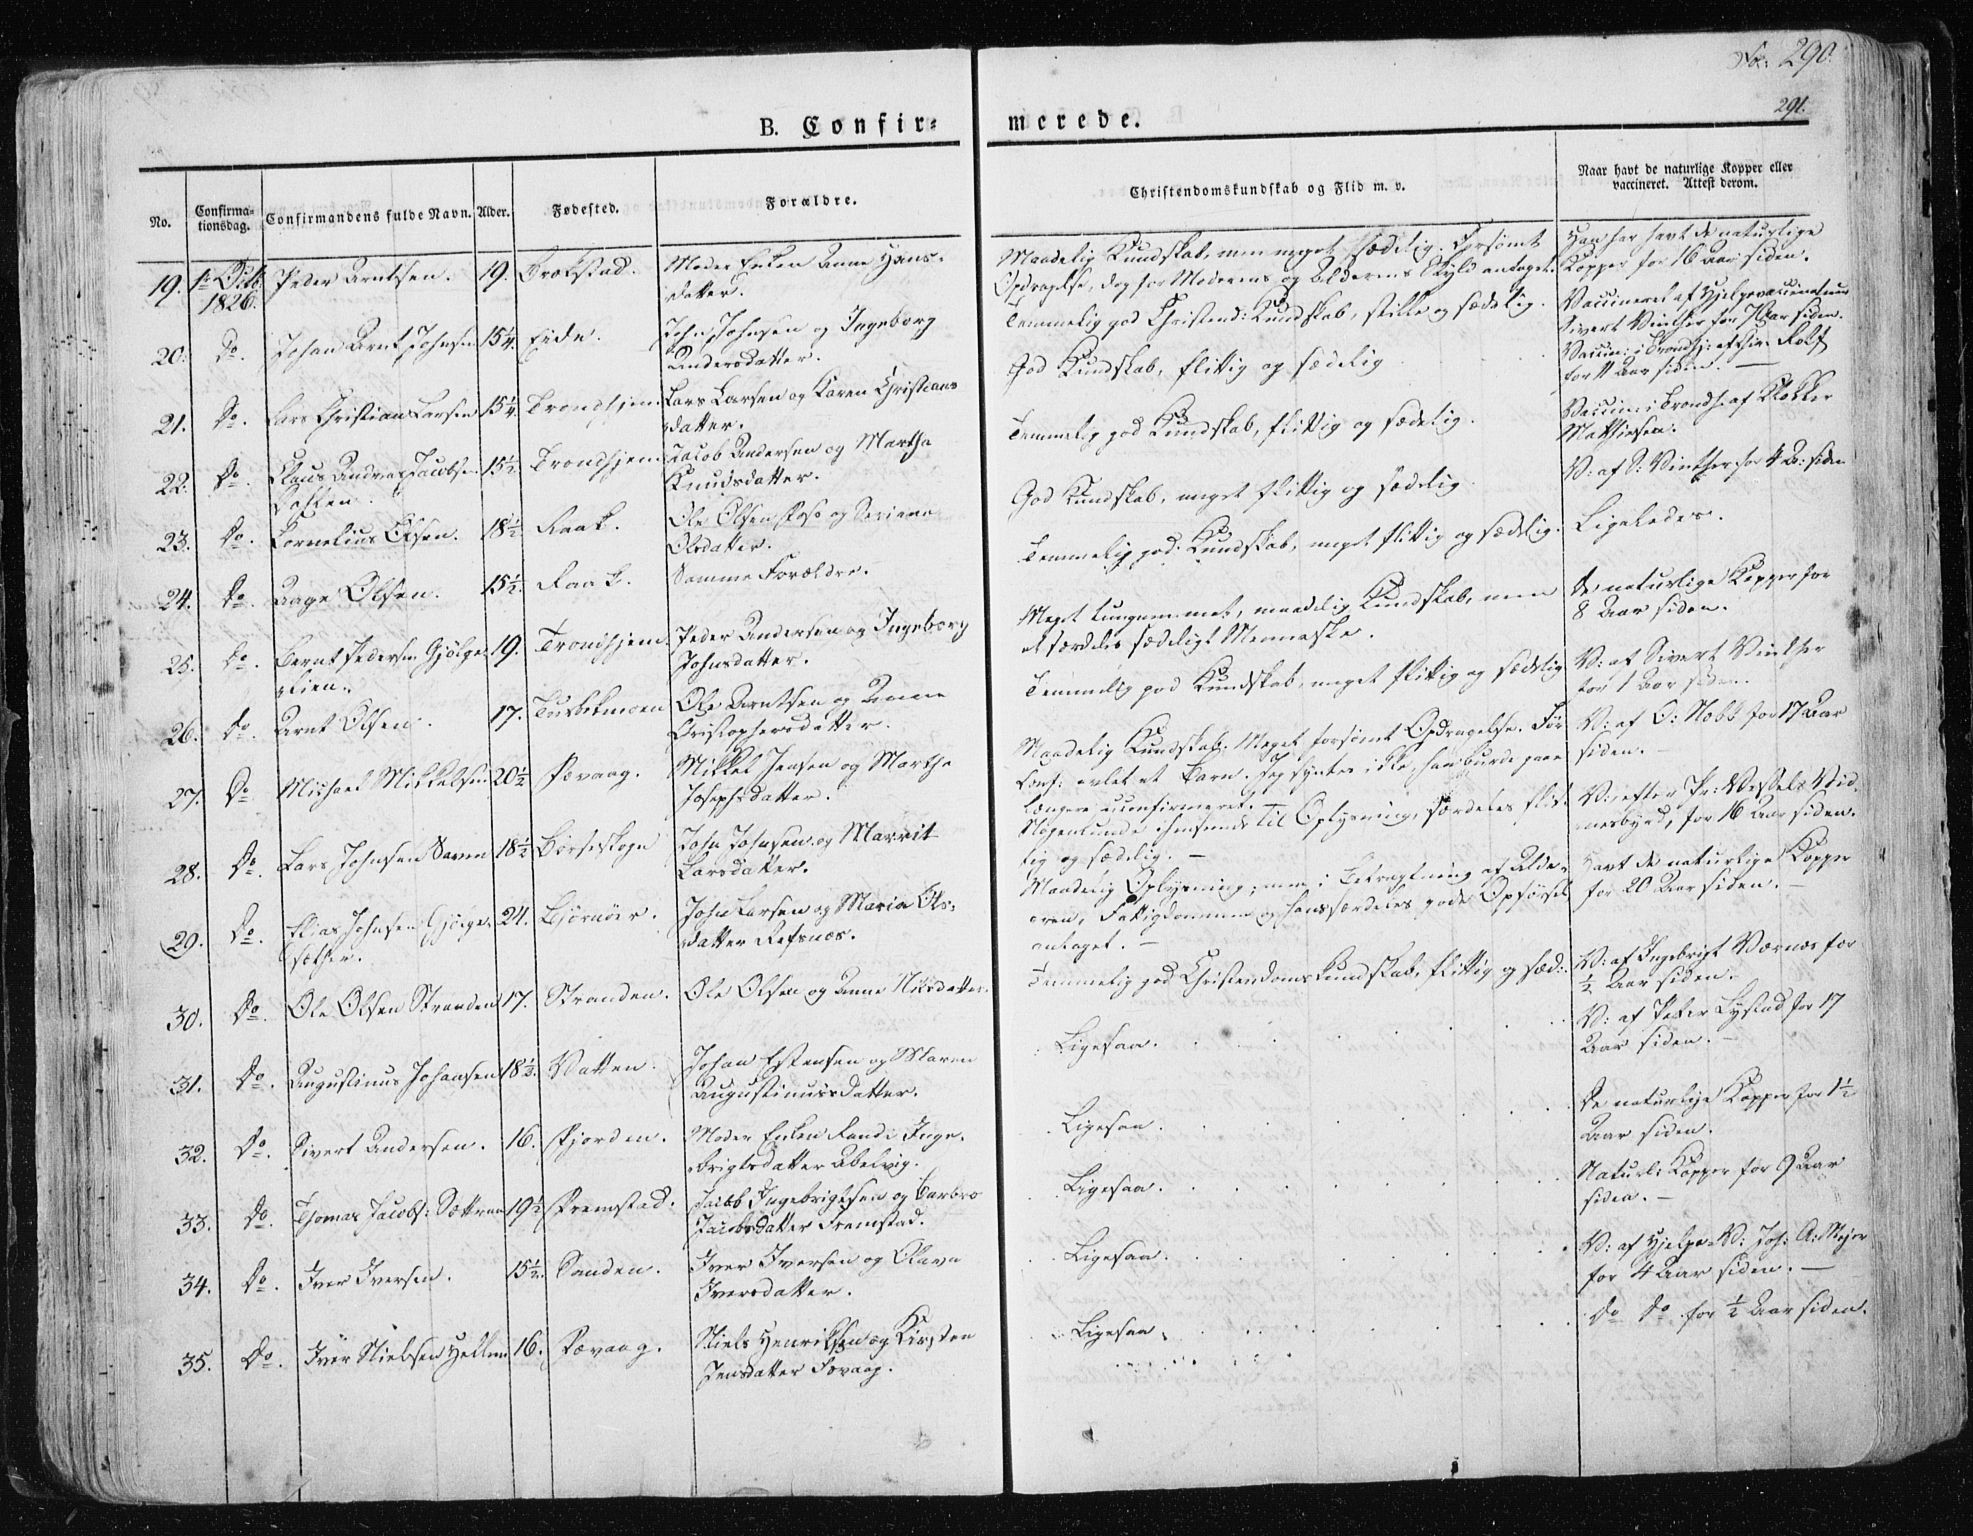 Fol: 290.
291.
B. Confir-
merede.
No.
Confirma-
tionsdag.
Confirmandens fulde Navn.
Alder.
Fødested.
Forældre.
Christendomskundskab og Flid m. v.
Naar havt de naturlige Kopper eller
vaccineret. Attest derom.
19. 1ste Octb. Peder Arntsen. 19. Krokstad. Moder Enken Anne Hans-
1826. datter.
Maadelig Kundskab, men meget sædelig. Forsømt
Opdragelse, dog for Moderens og Alderens Skyld antaget.
Han har havt de naturlige
Kopper for 16 Aar siden.
20. Do. Johan Arnt Johnsen 15¼. Eide. John Johnsen og Ingeborg
Andersdatter.
Temmelig god Christend: Kundskab, stille og sædelig.
Vaccineret af Hjelpevaccinateur
Sivert Vinther for 7 Aar siden.
21. Do. Lars Christian Larsen 15¼. Trondhjem Lars Larsen og Karen Christians
datter.
God Kundskab, flittig og sædelig
Vaccin: i Trondhj: af Chir: Rolf
for 11 Aar siden.
22. Do. Claus Andreas Jacobsen 15½. Trondhjem Jacob Andersen og Martha
Knudsdatter.
Temmelig god Kundskab, flittig og sædelig.
Vaccin: i Trondh: af Klokker
Mathiesen.
23. Do. Cornelius Olsen. 18½ Raak. Ole Olsen og
Olsdatter.
God Kundskab, meget flittig og sædelig.
V: af S: Vinther for 4 A: siden
24. Do. Aage Olsen. 15½. Raak. Samme Forældre.
Temmelig god Kundskab, meget flittig og sædelig.
Ligeledes.
25. Do. Bernt Pedersen Gjølge- 19. Trondhjem. Peder Andersen og Ingeborg
lien. Johnsdatter.
Meget tungnemmet, maadelig Kundskab, men
et særdeles sædeligt Menneske.
De naturlige Kopper for
8 Aar siden.
26. Do. Arnt Olsen. 17. Ole Arntsen og Anne
Christophersdatter.
Temmelig god Kundskab, meget flittig og sædelig
V: af Sivert Vinther
for 1 Aar siden.
27. Do. Michael Mikkelsen 20½ Pævaag. Mikkel Jensen og Martha
Josephsdatter.
Maadelig Kundskab. Meget forsømt Opdragelse. Før
Conf: avlet et Barn. Jeg syntes ikke, han burde gaae
længere uconfirmeret.
V: af O: Nobb for 17 Aar
siden.
28. Do. Lars Johnsen Saven 18½ Børseskogn John Johnsen og Marrit
Larsdatter.
Nogenlunde henseende til Oplysning, særdeles flit-
tig og sædelig.
V: efter Pr: Wessels Vid-
nesbyrd, for 16 Aar siden.
29. Do. Elias Johnsen Gjølge- 24. Bjørnør. John Larsen og Maria Ols-
sæther. datter Refsnes.
Maadelig Oplysning; men i Betragtning af Alde-
eren, Fattigdommen og hans særdeles gode Opførsel
antaget.
Havt de naturlige Kopper
for 20 Aar siden.
30. Do. Ole Olsen Stranden 17. Stranden. Ole Olsen og Anne Nilsdatter.
Temmelig god Christendomskundskab, flittig og sæd:
V: af Ingebrigt Værnæs for
½ Aar siden.
31. Do. Augustinus Johansen 18½. Vatten. Johan Estensen og Maren
Augustinusdatter.
Ligesaa.
V: af Peter Lystad for 17
Aar siden.
32. Do. Sivert Andersen. 16. Fjorden. Moder Enken Randi Inge-
brigtsdatter Abelvig.
Ligesaa.
De naturlige Kopper for 1½
Aar siden.
33. Do. Thomas Jacobs: Sættran 19½ Fremstad. Jacob Ingebrigtsen og Barbro
Jacobsdatter Fremstad.
Ligesaa.
Naturl: Kopper for 9 Aar
siden.
34. Do. Iver Iversen. 15½. Sanden. Iver Iversen og Olava
Iversdatter.
Ligesaa.
V: af Hjelpe-V: Joh: A: Mejer
for 4 Aar siden.
35. Do. Iver Nielsen Hellem 16. Pævaag. Niels Henriksen og Kirsten
Jensdatter Pævaag.
Ligesaa.
Do Do for ½ Aar siden.